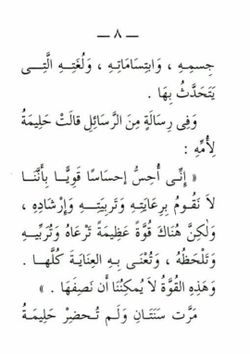 — ٨ —
جِسمِهِ ، وَابتِسَامَاتِهِ ، وَلُغَتِهِ الَّتِــى
يَتَحَدَّثُ بِهَا .
وَفِى رِسَالَةٍ مِنَ الرَّسَائِلِ قالَتْ حَلِيمَةُ
لِأُمِّهِ :
« إِنِّى أُحِسُّ إِحسَاسًا قَوِيًّا بِأَنَّنَا
لاَ نَقُومُ بِرِعَايَتِهِ وَتَربِيَتِــهِ وَإِرْشَادِهِ ،
وَلٰكِنَّ هُنَاكَ قُوَّةً عَظِيمَةً تَرْعَاهُ وَتُرَبِّيهِ
وَتَلْحَظُهُ ، وَتُعْنَى بِهِ العِنَايَةَ كُلَّهَا .
وَهَذِهِ القُوَّةُ لاَ يُمكِنُنَا أَن نَصِفَهَا . »
مَرَّت سَنَتَانِ وَلَم تُــحضِرْ حَلِيمَةُ